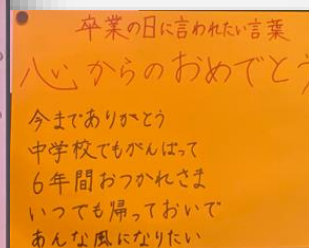 卒業の日に言われたい言葉
心からのおめでとう
今までありがとう
中学校でもがんばって
6年間おつかれさま
いつでも帰っておいで
あんな風になりたい